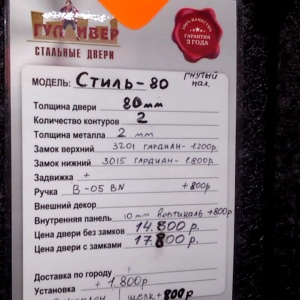 ГУЛЛИВЕР
СТАЛЬНЫЕ ДВЕРИ
100% КАЧЕСТВО
ГАРАНТИЯ
3 ГОДА
МОДЕЛЬ: Стиль-80 гнутый нал.
Толщина двери 80мм
Количество контуров 2
Толщина металла 2 мм
Замок верхний 3201 ГАРДИАН-1200р.
Замок нижний 3015 ГАРДИАН-1.800р.
Задвижка +
Ручка В-05 BN +800р
Внешний декор
Внутренняя панель 10мм вертикаль +800р
Цена двери без замков 14.800 р.
Цена двери с замками 17.800 р.
Доставка по городу +
Установка +1.800р
шёлк +800р